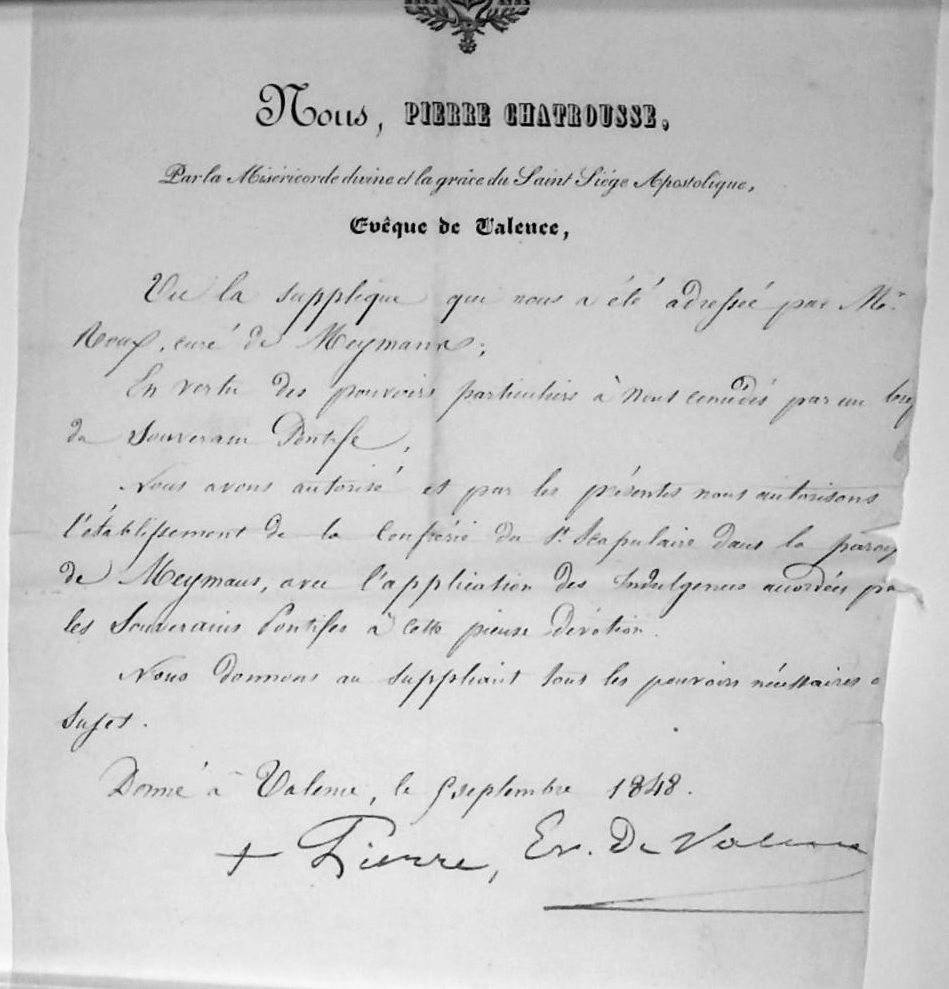 Nous, PIERRE CHATROUSSE,
Par la Miséricorde divine et la grâce du Saint Siége Apostolique,
Evêque de Valence,
Vu la supplique qui nous a été adressée par Mr.
Roux, curé de Meymans;
En vertu des pouvoirs particuliers à nous concédés par un
du Souverain Pontife,
Nous avons autorisé et par les présentes nous autorisons
l'établissement de la Confrérie du St. Scapulaire dans la parois
de Meymans, avec l'application des Indulgences accordées pa
les Souverains Pontifes à cette pieuse dévotion.
Nous donnons au suppliant tous les pouvoirs nécessaires
sujet.
Donné à Valence, le septembre 1848.
+ Pierre, Ev. De Valence